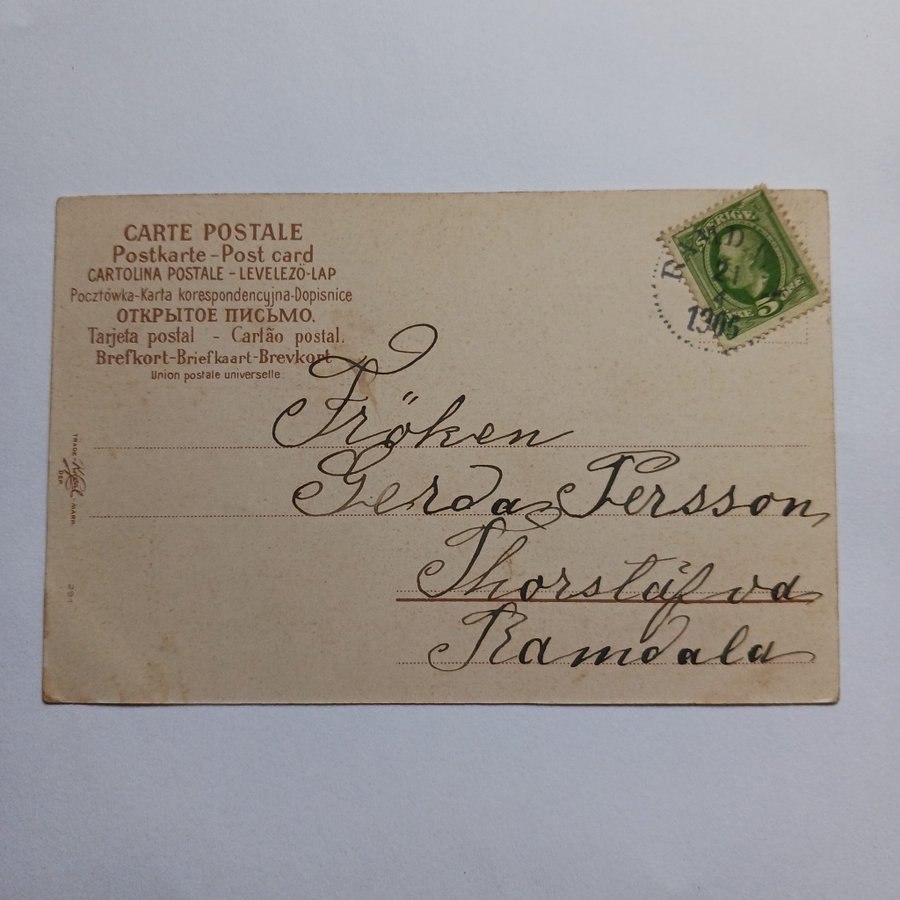 CARTE POSTALE
Postkarte-Post card
CARTOLINA POSTALE-LEVELEZÖ-LAP
Pocztówka-Karta korespondencyjna-Dopisnice
ОТКРЫТОЕ ПИСЬМО.
Tarjeta postal - Cartão postal.
Brefkort-Briefkaart-Brevkort
Union postale universelle.
SVERIGE
5
21
1905
Fröken
Gerda Persson
Thorstäfva
Ramdala
TRADE MARK
DEP.
291